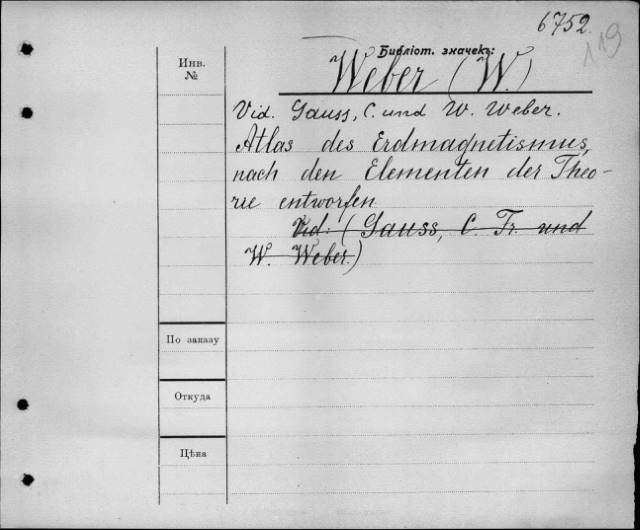 6752
119
Библіот. значекъ:
Инв.
№
Weber (W.)
Vid. Gauss, C. und W. Weber.
Atlas des Erdmagnetismus,
nach den Elementen der Theo-
rie entworfen
Vid: (Gauss, C. Fr. und
W. Weber.)
По заказу
Откуда
Цѣна